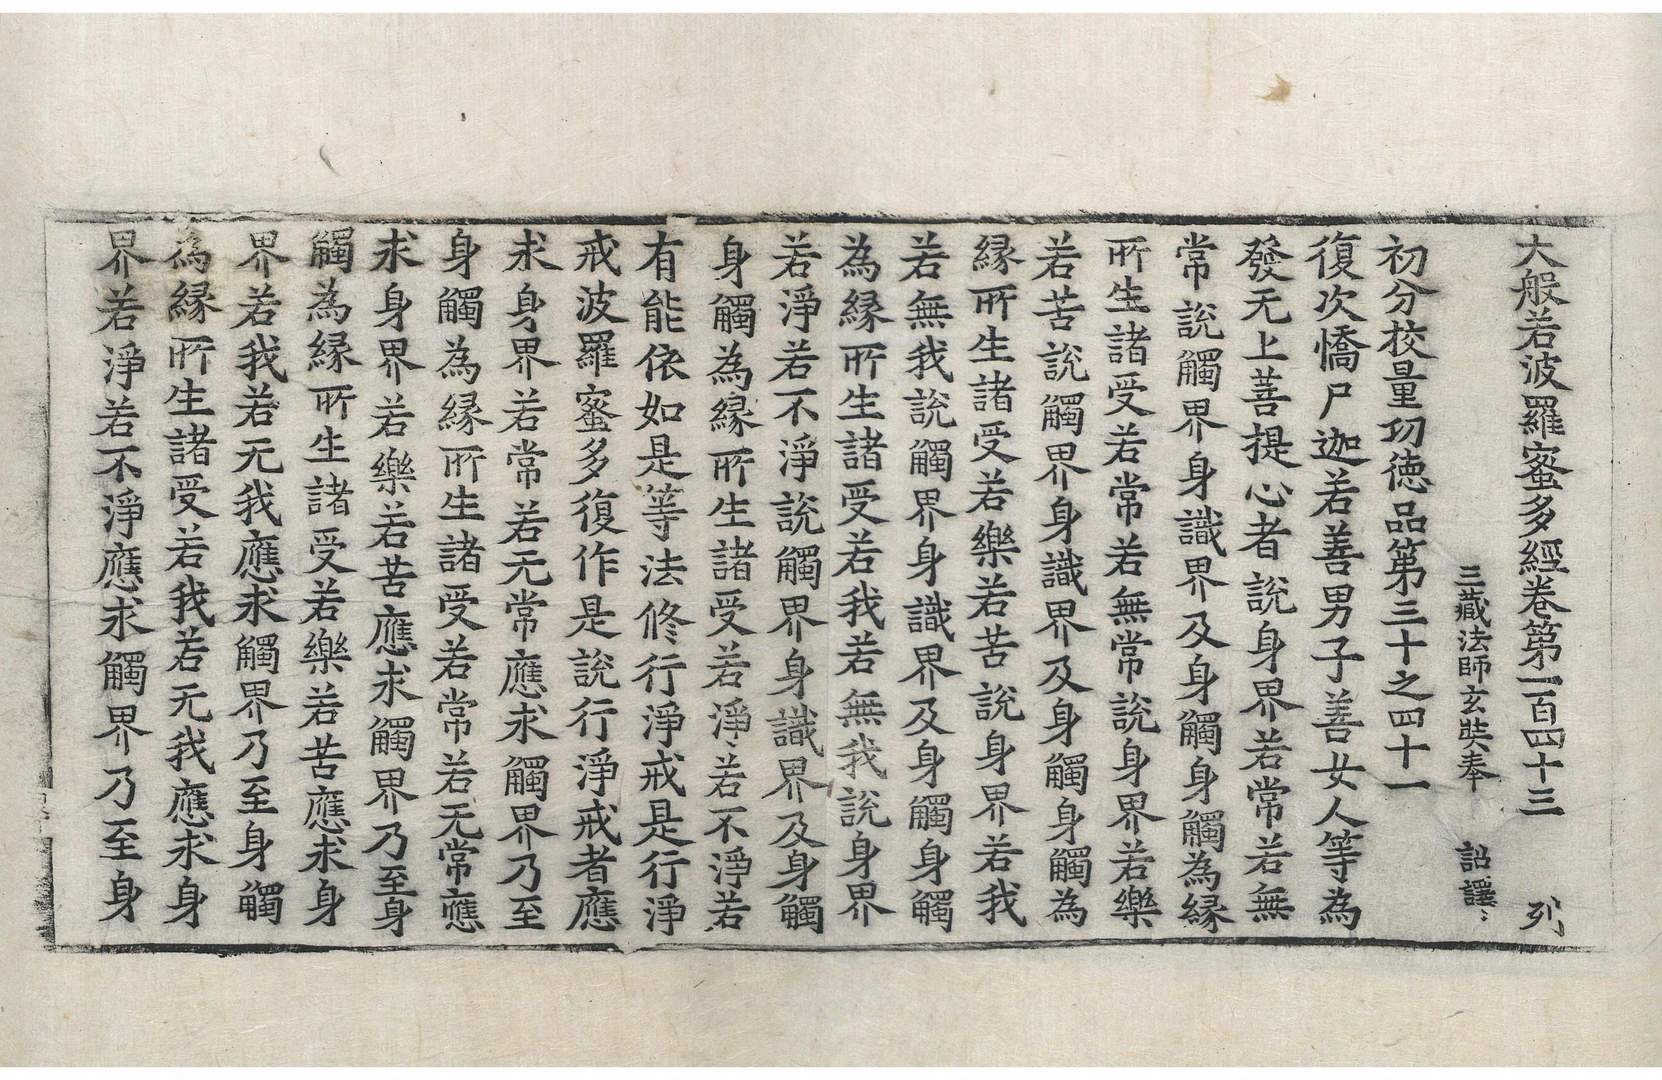 大般若波羅蜜多經卷第一百四十三 列
三藏法師玄奘奉 詔譯
初分校量功徳品第三十之四十一
復次憍尸迦若善男子善女人等為
發无上菩提心者說身界若常若無
常說觸界身識界及身觸身觸為縁
所生諸受若常若無常說身界若樂
若苦說觸界身識界及身觸身觸為
縁所生諸受若樂若苦說身界若我
若無我說觸界身識界及身觸身觸
為縁所生諸受若我若無我說身界
若淨若不淨說觸界身識界及身觸
身觸為縁所生諸受若淨若不淨若
有能依如是等法修行淨戒是行淨
戒波羅蜜多復作是說行淨戒者應
求身界若常若无常應求觸界乃至
身觸為縁所生諸受若常若无常應
求身界若樂若苦應求觸界乃至身
觸為縁所生諸受若樂若苦應求身
界若我若无我應求觸界乃至身觸
為縁所生諸受若我若无我應求身
界若淨若不淨應求觸界乃至身